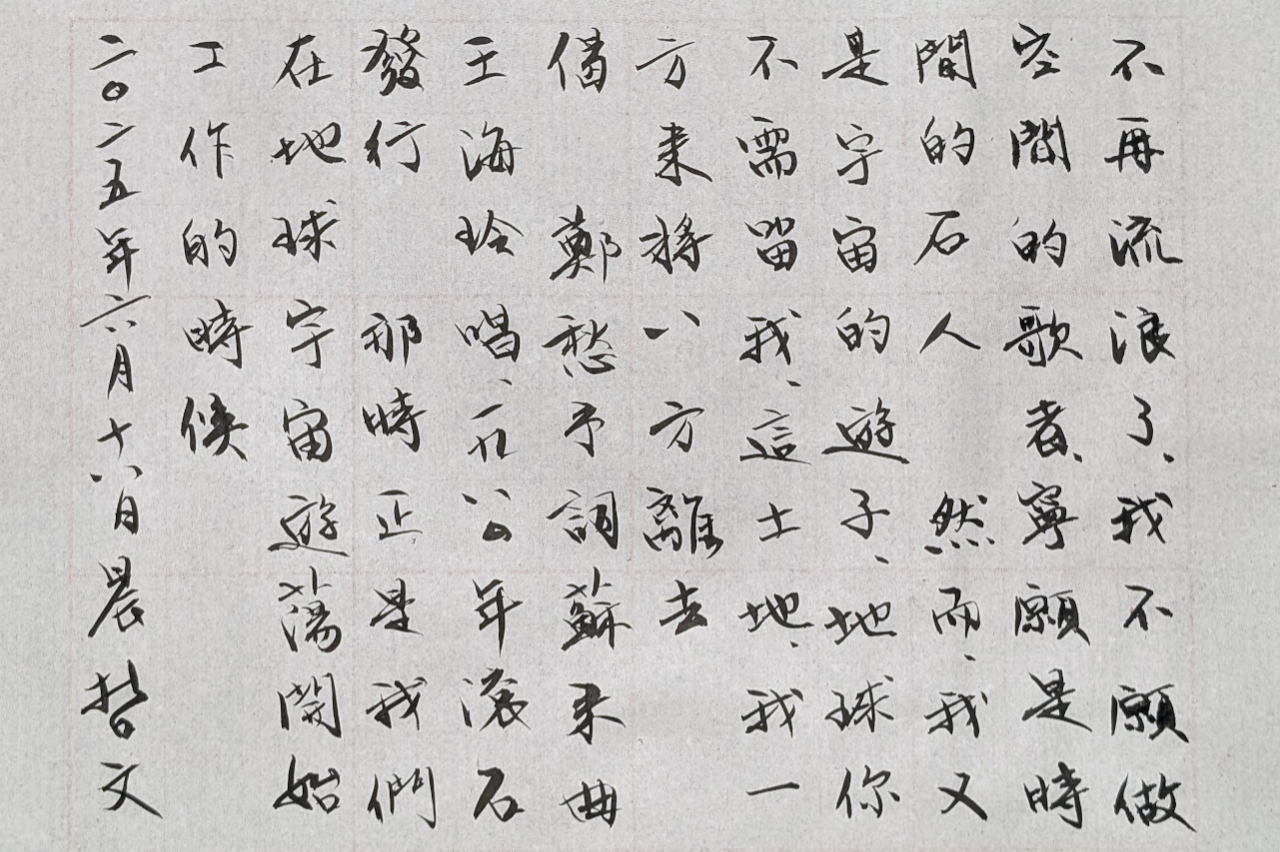 不再流浪了、我不願做
空間的歌者、寧願是時
間的石人 然而、我又
是宇宙的遊子、地球你
不需留我、這土地、我一
方來將八方離去
鄭愁予詞蘇來曲
王海玲唱、一九八〇年滾石
發行 那時正是我們
在地球宇宙遊蕩開始
工作的時候
二〇二五年六月十八日晨哲文